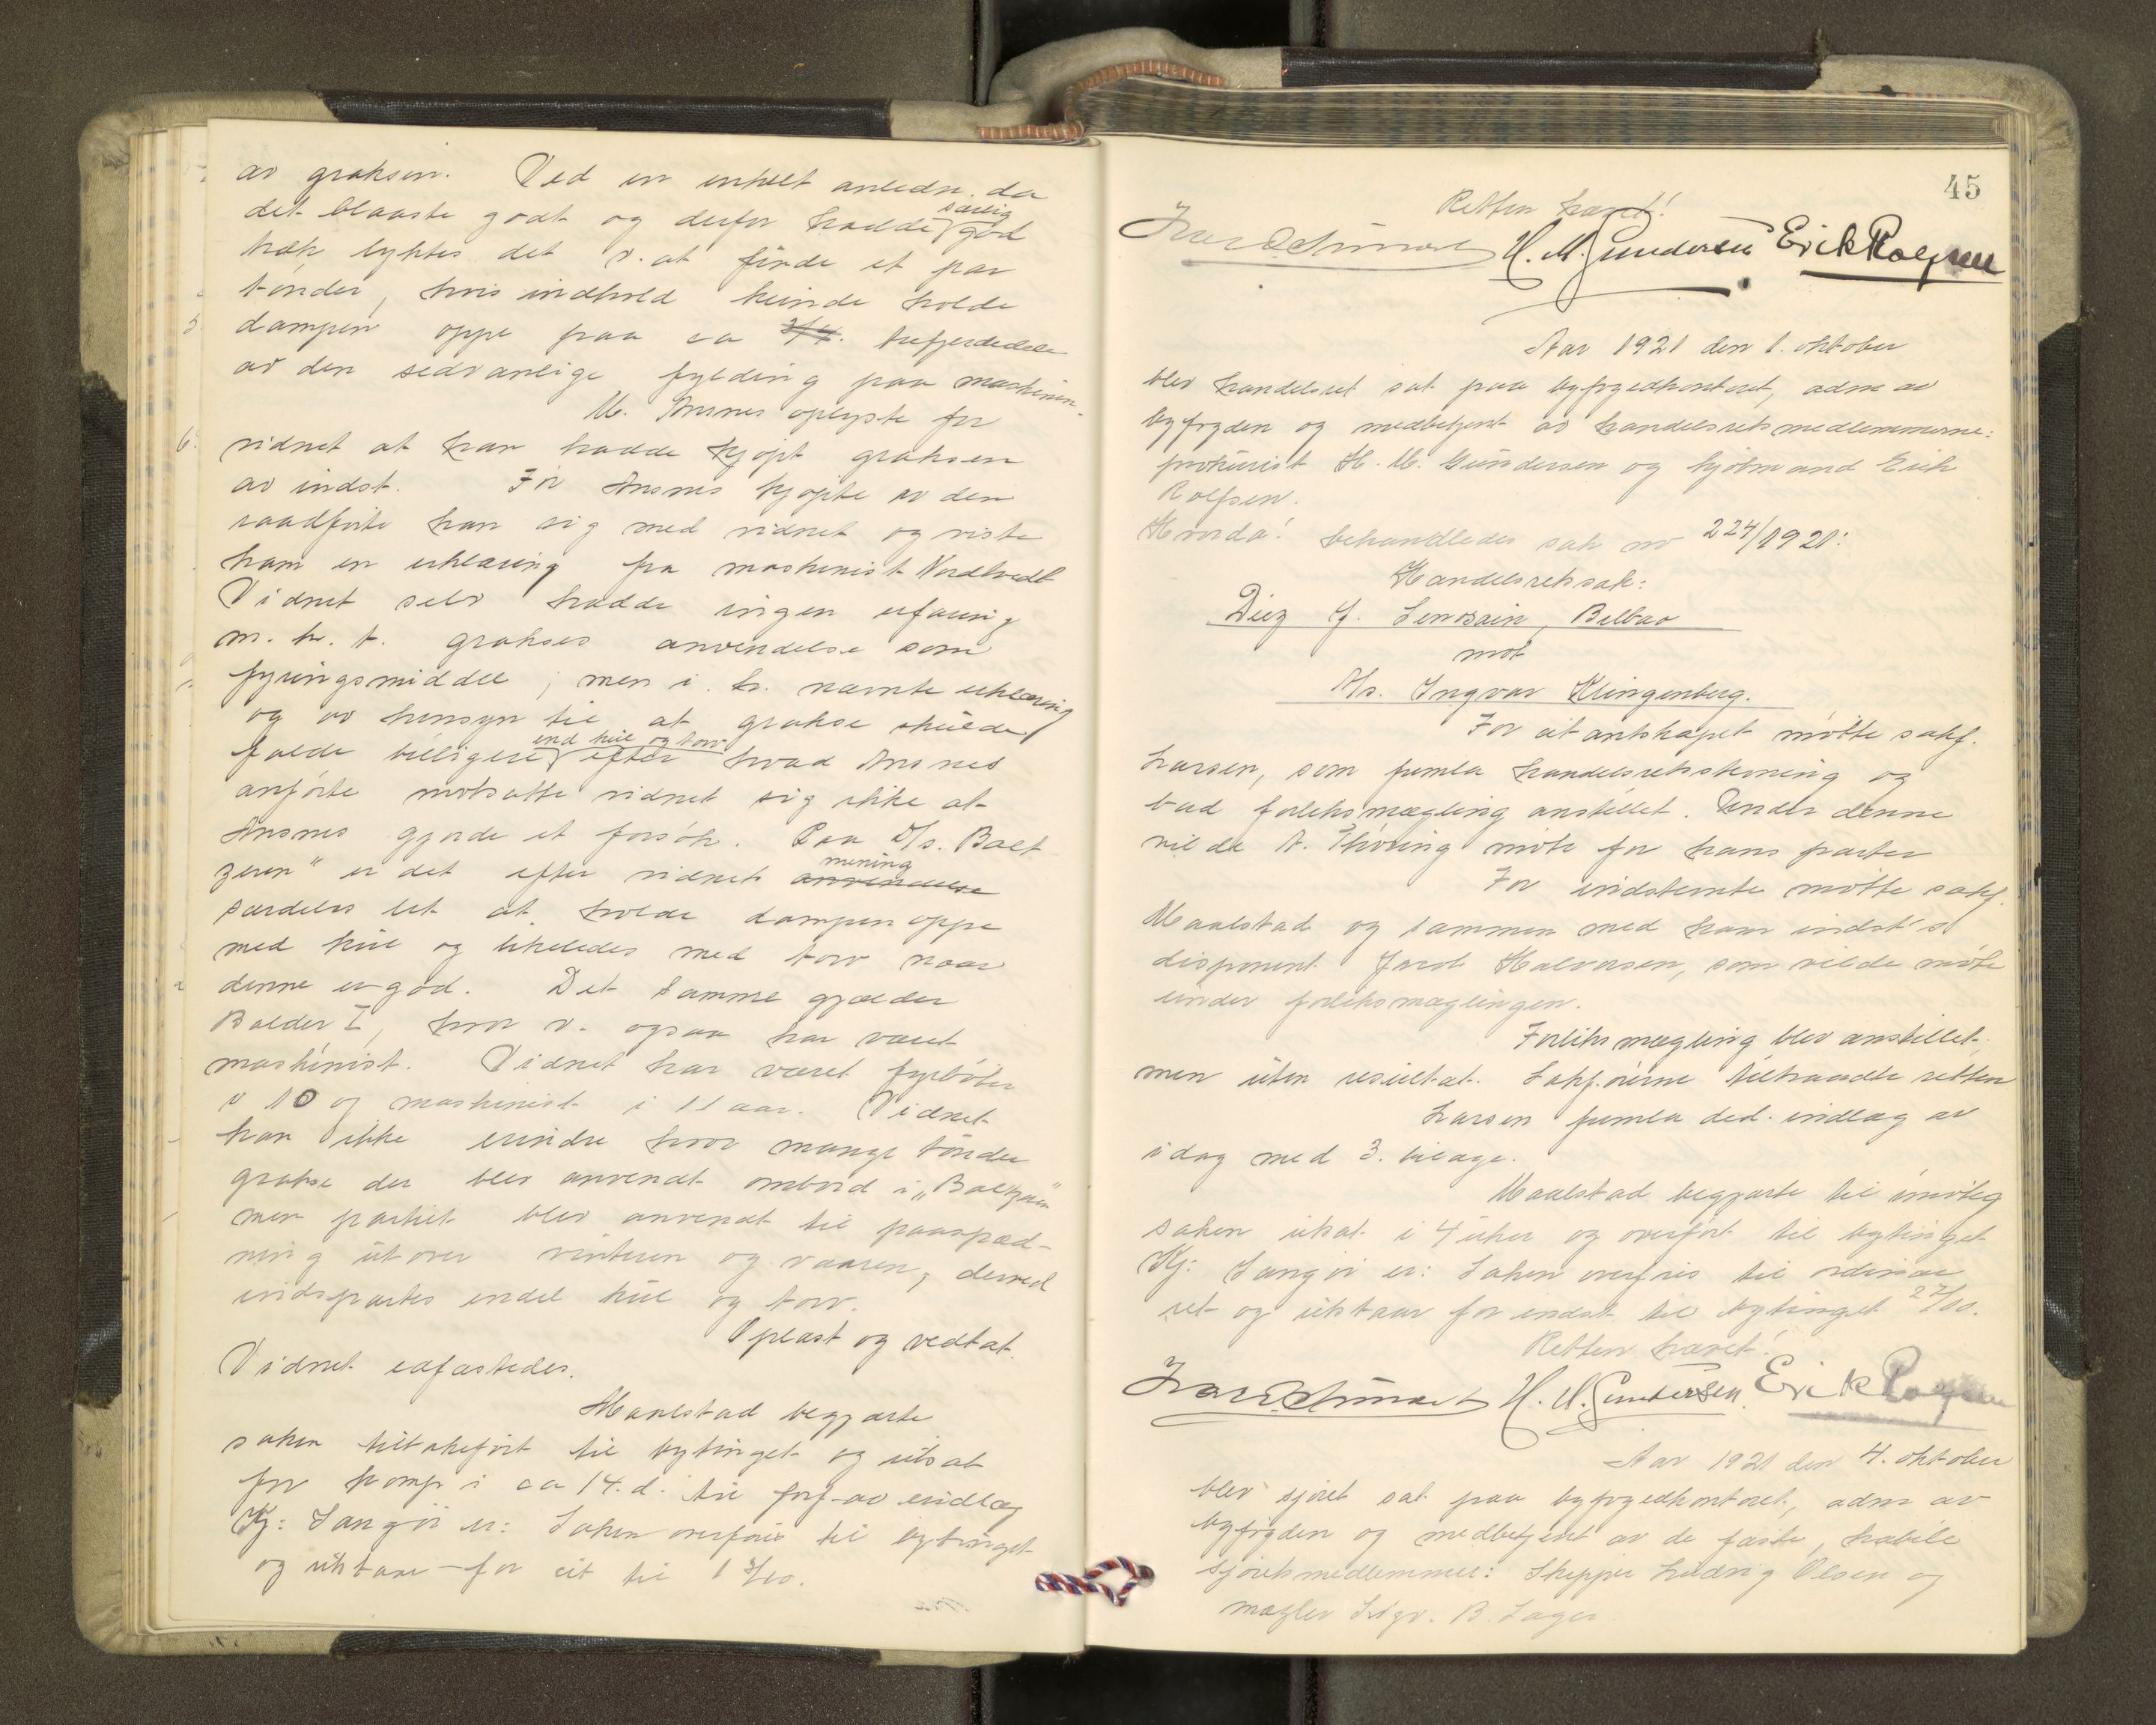 av graksen. Ved en enkelt anledn. da
det blaaste godt og derfor hadde særlig god
træk lyktes det v. at finde et par
tønder, hvis indhold kunde holde
dampen oppe paa ca 3/4. trefjerdedele
av den sedvanlige fylding paa maskinen.
M. Ansnes oplyste for
vidnet at han hadde kjøpt graksen
av indst. Før Ansnes kjøpte av den
raadførte han sig med vidnet og viste
ham en erklæring fra maskinist Nordtvedt
Vidnet selv hadde ingen erfaring
m. h. t. grakses anvendelse som
fyringsmiddel; men i. h. nævnte erklæring
og av hensyn til at grakse skulde
falde billigere end kul og torv efter hvad Ansnes
anførte motsatte vidnet sig ikke at
Ansnes gjorde et forsøk. Paa D/s. Balt
zeren" er det efter vidnets anvendelse mening
særdeles let at holde dampen oppe
med kul og likeledes med torv naar
denne er god. Det samme gjælder
Balder I, hvor v. ogsaa har været
maskinist. Vidnet har været fyrbøter
i 10 og maskinist i 11 aar. Vidnet
kan ikke erindre hvor mange tønder
grakse der blev anvendt ombord i "Baltzeren"
men partiet blev anvendt til paaspæd-
ning utover vinteren og vaaren, derved
indspartes endel kul og torv.
Oplæst og vedtat.
Vidnet eafæstedes.
Maalstad begjærte
saken tilbakeført til bytinget og utsat
for komp i ca 14. d. til forf. av indlæg
Kj: Sangør er: Saken overføres til bytinget
og utstaar for cit til 13/10.
45
Retten hævet!
H. M. Gundersen Erik Rolfsen
Aar 1921 den 1. oktober
blev handelsret sat paa byfogedkontoret, adm av
byfogden og medbetjent av handelsretsmedlemmerne:
prokurist H. M. Gundersen og kjøbmand Erik
Rolfsen.
Hvorda! behandledes sak no 224/1921:
Handelsretssak:
Diez y. Lenosain, Bilbao
mot
A/s. Ingvar Klingenberg.
For citantskapet møtte sakf.
Larsen, som fremla handelsretsstevning og
bad forliksmægling anstillet. Under denne
vilde A. Thoring møte for hans parter
For indstevnte møtte sakf.
Maalstad og sammen med ham indst's
disponent Jacob Halvorsen, som vilde møte
under forliksmæglingen.
Forliksmægling blev anstillet,
men uten resultat. Sakførerne tiltraadte retten
Larsen fremla ded. indlæg av
idag med 3. bilage.
Maalstad begjærte til imøteg
saken utsat i 4 uker og overført til bytinget
Kj: Sangør er: Saken overføres til ordinær
ret og utstaar for indst. til bytinget 27/10.
Retten hævet!
H. M. Gundersen. Erik Rolfsen
Aar 1921 den 4. oktober
blev sjøret sat paa byfogedkontoret, adm av
byfogden og medbetjent av de faste, habile
sjøretsmedlemmer: Skipper Ludvig Olsen og
mægler Sigv. B. Lager